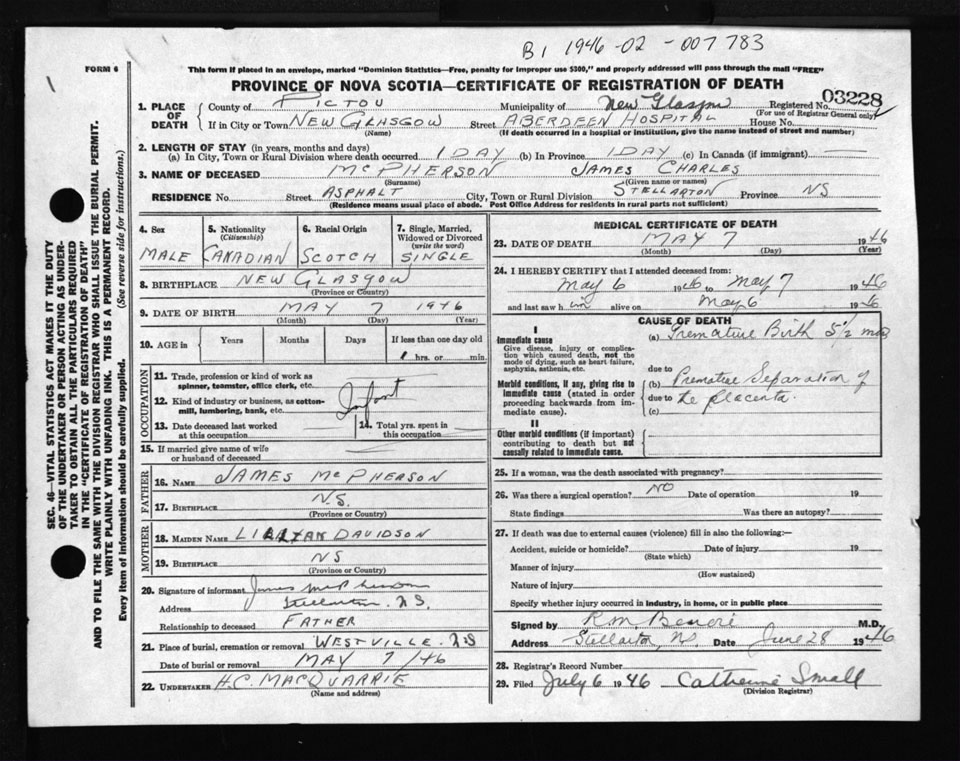 B1 1946-02-007783
FORM 6
This form if placed in an envelope, marked "Dominion Statistics—Free, penalty for improper use $300," and properly addressed will pass through the mail "FREE"
PROVINCE OF NOVA SCOTIA—CERTIFICATE OF REGISTRATION OF DEATH
03228
1. PLACE OF DEATH County of PICTOU Municipality of New Glasgow Registered No.
(For use of Registrar General only)
If in City or Town NEW GLASGOW Street ABERDEEN HOSPITAL House No.
(Name) (If death occurred in a hospital or institution, give the name instead of street and number)
2. LENGTH OF STAY (in years, months and days)
(a) In City, Town or Rural Division where death occurred 1 DAY (b) In Province 1 DAY (c) In Canada (if immigrant)
3. NAME OF DECEASED McPHERSON JAMES CHARLES
(Surname) (Given name or names)
RESIDENCE No. Street ASPHALT City, Town or Rural Division STELLARTON Province NS
(Residence means usual place of abode. Post Office Address for residents in rural parts not sufficient)
4. Sex MALE
5. Nationality (Citizenship) CANADIAN
6. Racial Origin SCOTCH
7. Single, Married, Widowed or Divorced (write the word) SINGLE
8. BIRTHPLACE NEW GLASGOW
(Province or Country)
9. DATE OF BIRTH MAY 7 1946
(Month) (Day) (Year)
10. AGE in Years Months Days If less than one day old
1 hrs. or min.
OCCUPATION
11. Trade, profession or kind of work as spinner, teamster, office clerk, etc.
Infant
12. Kind of industry or business, as cotton-mill, lumbering, bank, etc.
13. Date deceased last worked at this occupation
14. Total yrs. spent in this occupation
15. If married give name of wife or husband of deceased
FATHER
16. NAME JAMES McPHERSON
17. BIRTHPLACE N.S.
(Province or Country)
MOTHER
18. MAIDEN NAME LILLYAN DAVIDSON
19. BIRTHPLACE NS
(Province or Country)
20. Signature of informant James McPherson
Address Stellarton N.S.
Relationship to deceased FATHER
21. Place of burial, cremation or removal WESTVILLE. NS
Date of burial or removal MAY 7/46
22. UNDERTAKER H.C. MACQUARRIE
(Name and address)
MEDICAL CERTIFICATE OF DEATH
23. DATE OF DEATH MAY 7 1946
(Month) (Day) (Year)
24. I HEREBY CERTIFY that I attended deceased from:
May 6 1946 to May 7 1946
and last saw him alive on May 6 1946
CAUSE OF DEATH
I
Immediate cause
Give disease, injury or complication which caused death, not the mode of dying, such as heart failure, asphyxia, asthenia, etc.
(a) Premature Birth 5½ mos
due to
Morbid conditions, if any, giving rise to immediate cause (stated in order proceeding backwards from immediate cause).
(b) Premature Separation of
due to the placenta
(c)
II
Other morbid conditions (if important) contributing to death but not causally related to immediate cause.
25. If a woman, was the death associated with pregnancy?
26. Was there a surgical operation? NO Date of operation 19
State findings Was there an autopsy?
27. If death was due to external causes (violence) fill in also the following:—
Accident, suicide or homicide? Date of injury 19
(State which)
Manner of injury
(How sustained)
Nature of injury
Specify whether injury occurred in industry, in home, or in public place
Signed by R.M. M.D.
Address Stellarton, NS. Date June 28 1946
28. Registrar's Record Number
29. Filed July 6 1946 Catherine Small
(Division Registrar)
SEC. 46—VITAL STATISTICS ACT MAKES IT THE DUTY
OF THE UNDERTAKER OR PERSON ACTING AS UNDER-
TAKER TO OBTAIN ALL THE PARTICULARS REQUIRED
IN THE "CERTIFICATE OF REGISTRATION OF DEATH"
AND TO FILE THE SAME WITH THE DIVISION REGISTRAR WHO SHALL ISSUE THE BURIAL PERMIT.
WRITE PLAINLY WITH UNFADING INK. THIS IS A PERMANENT RECORD.
Every item of information should be carefully supplied. (See reverse side for instructions.)